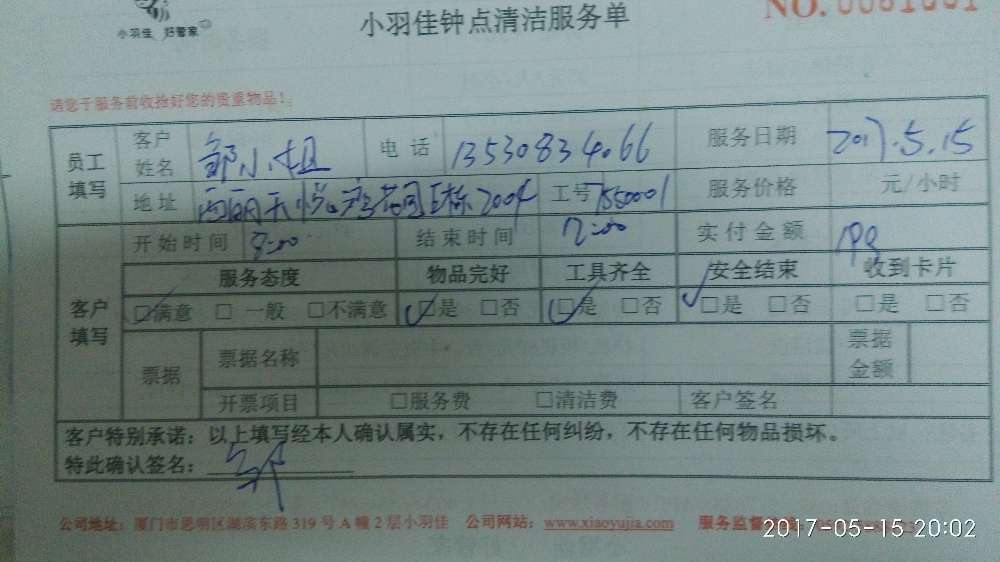 小羽佳 好管家
小羽佳钟点清洁服务单
NO.
请您于服务前收拾好您的贵重物品!
员工填写
客户姓名 邹小姐 电话 13530834066 服务日期 2017.5.15
地址 2004 工号 7550001 服务价格 元/小时
客户填写
开始时间 9:00 结束时间 12:00 实付金额
服务态度 物品完好 工具齐全 安全结束 收到卡片
□满意 □一般 □不满意 □是 □否 □是 □否 □是 □否 □是 □否
票据 票据名称 票据金额
开票项目 □服务费 □清洁费 客户签名
客户特别承诺:以上填写经本人确认属实,不存在任何纠纷,不存在任何物品损坏。
特此确认签名: 邹
公司地址:厦门市思明区湖滨东路319号A幢2层小羽佳 公司网站:www.xiaoyujia.com 服务监督
2017-05-15 20:02